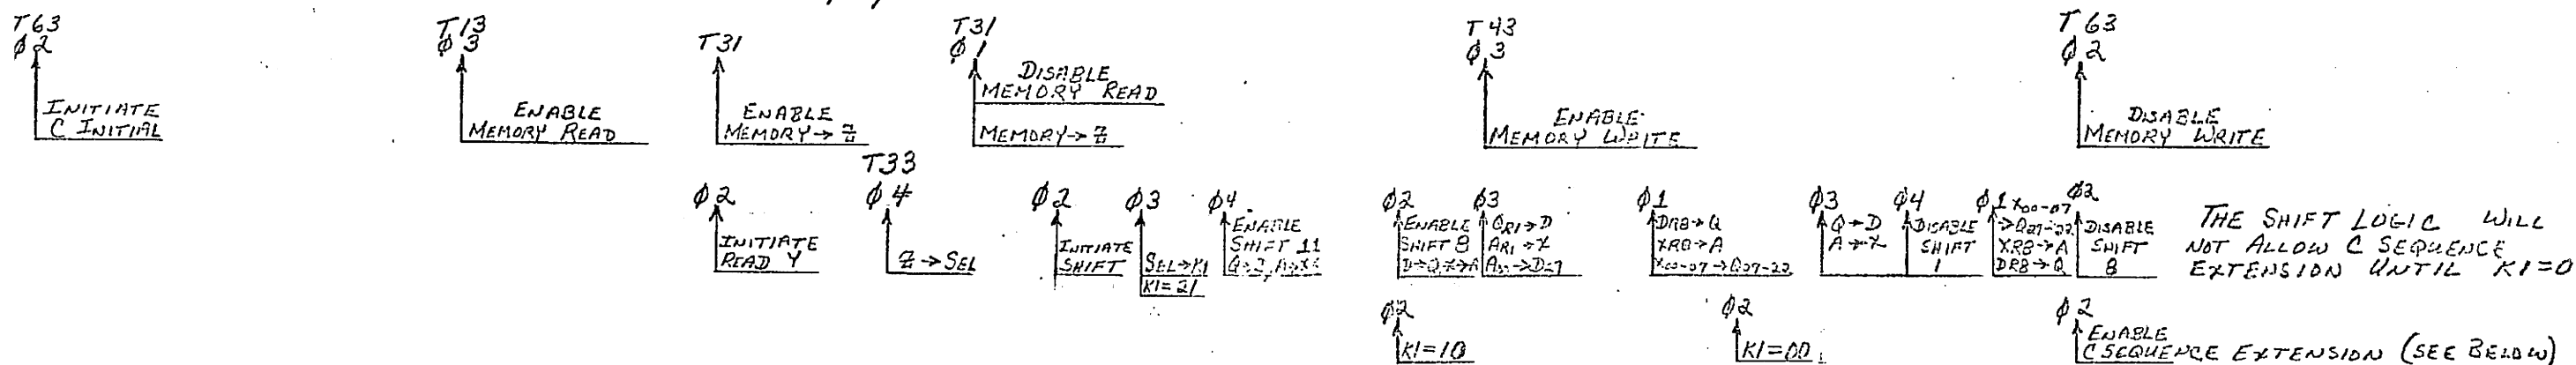 T63
φ2
INITIATE
C INITIAL
T13
φ3
ENABLE
MEMORY READ
T31
ENABLE
MEMORY→Z
T31
φ1
DISABLE
MEMORY READ
MEMORY→Z
T43
φ3
ENABLE
MEMORY WRITE
T63
φ2
DISABLE
MEMORY WRITE
φ2
INITIATE
READ Y
T33
φ4
Z→SEL
φ2
INITIATE
SHIFT
φ3
SEL→K1
K1=21
φ4
ENABLE
SHIFT 11
φ2
ENABLE
SHIFT 8
φ3
QR1→D
AR1→X
φ1
DR8→Q
XR8→A
X00-07→Q27-20
φ3
Q→D
A→X
φ4
DISABLE
SHIFT
1
φ1 X00-07
XR8→A
DR8→Q
φ2
DISABLE
SHIFT
8
THE SHIFT LOGIC WILL
NOT ALLOW C SEQUENCE
EXTENSION UNTIL K1=0
φ2
K1=10
φ2
K1=00
φ2
ENABLE
C SEQUENCE EXTENSION (SEE BELOW)